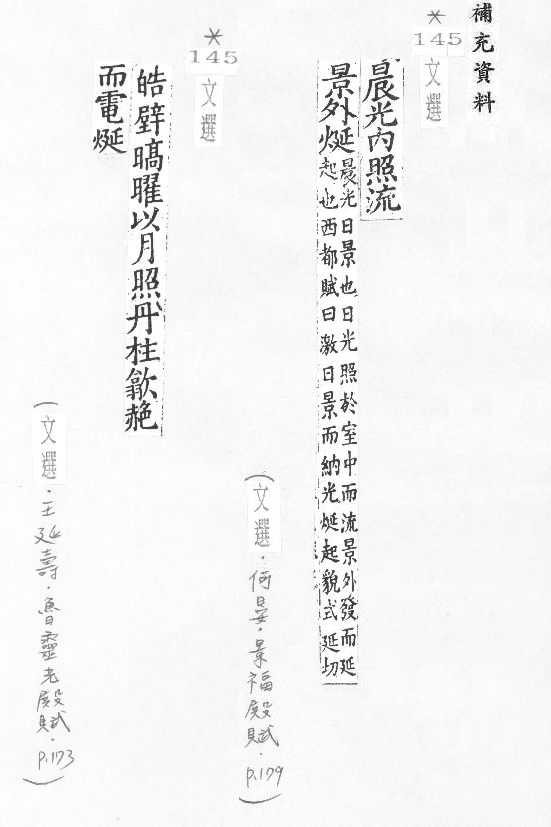 補充資料
*
145
文選
晨光內照流
景外烻
晨光日景也日光照於室中而流景外發而延
起也西都賦曰激日景而納光烻起貌式延切
(文選．何晏．景福殿賦．p.179)
*
145
文選
皓壁暠曜以月照丹柱歙赩
而電烻
(文選．王延壽．魯靈光殿賦．p.173)